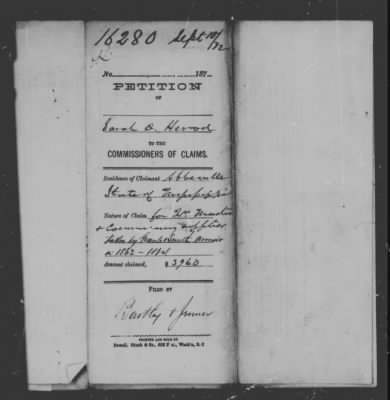 16280 Sept 10/72
No. 187
PETITION
OF
Sarah D. Herod
TO THE
COMMISSIONERS OF CLAIMS.
Residence of Claimant Abbeville
State of Mississippi
Nature of Claim for Qr Master
& Commissary supplies
taken by Grant &
in 1862-1864
Amount claimed, $ 3960
FILED BY
Bartley &
PRINTED AND SOLD BY
Powell, Ginck & Co., 632 F st., Wash'n, D. C